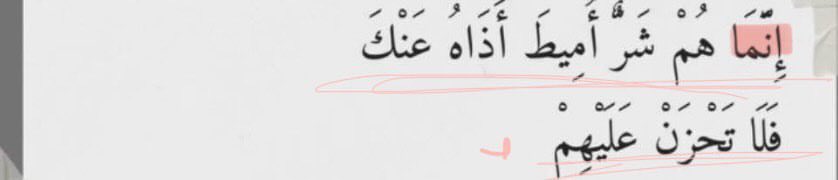 إِنَّمَا هُمْ شَرٌّ أُمِيطَ أَذَاهُ عَنْكَ
فَلَا تَحْزَنْ عَلَيْهِمْ